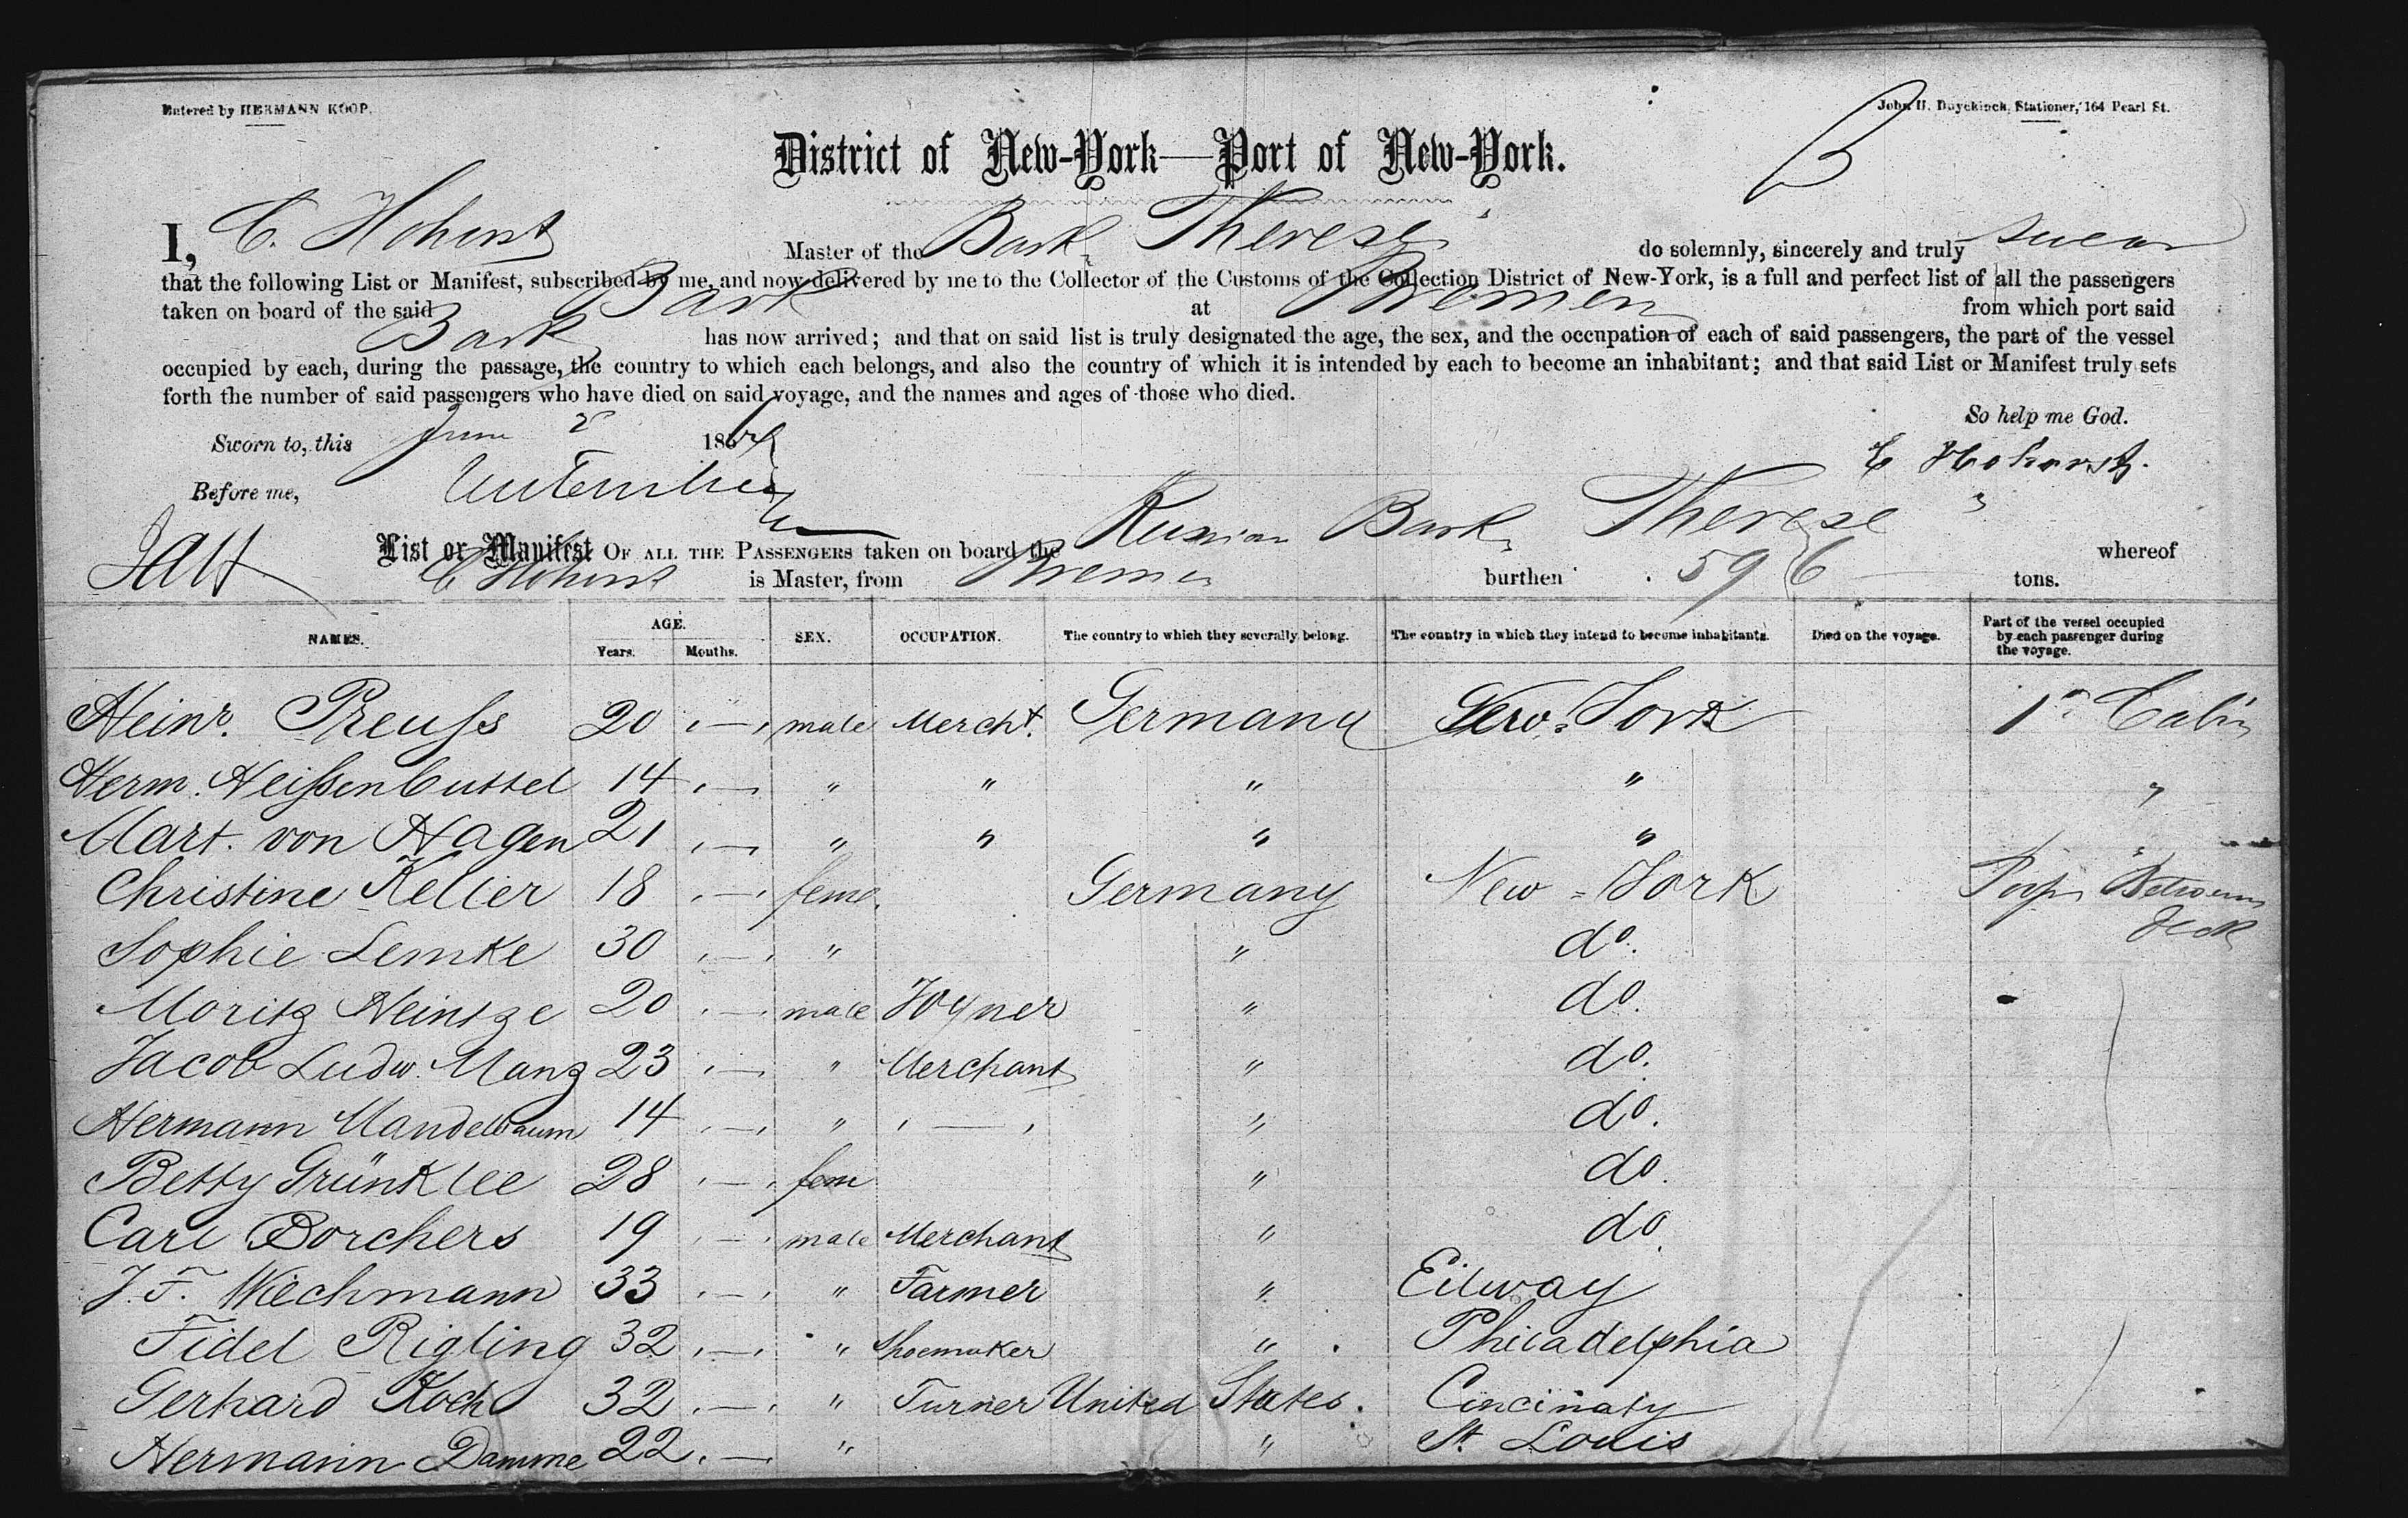 Entered by HERMANN KOOP.
John H. Duyckinck, Stationer, 164 Pearl St.
B
District of New-York—Port of New-York.
I, C. Hohorst Master of the Bark Therese do solemnly, sincerely and truly swear
that the following List or Manifest, subscribed by me, and now delivered by me to the Collector of the Customs of the Collection District of New-York, is a full and perfect list of all the passengers
taken on board of the said Bark at Bremen from which port said
Bark has now arrived; and that on said list is truly designated the age, the sex, and the occupation of each of said passengers, the part of the vessel
occupied by each, during the passage, the country to which each belongs, and also the country of which it is intended by each to become an inhabitant; and that said List or Manifest truly sets
forth the number of said passengers who have died on said voyage, and the names and ages of those who died.
So help me God.
Sworn to, this June 2 186
C Hohorst.
Before me,
List or Manifest OF ALL THE PASSENGERS taken on board the Russian Bark Therese whereof
C Hohorst is Master, from Bremen burthen 596 tons.
NAMES. AGE. Years. Months. SEX. OCCUPATION. The country to which they severally belong. The country in which they intend to become inhabitants. Died on the voyage. Part of the vessel occupied by each passenger during the voyage.
Heinr. Preuſs 20 " — " male Mercht. Germany New=York 1st Cabin
Herm. Heiſsenbuttel 14 " — " " " " " "
Mart. von Hagen 21 " — " " " " " "
Christine Keller 18 " — " feme. Germany New=York Poop Between
Deck
Sophie Lemke 30 " — " " " do.
Moritz Heintze 20 " — " male Joyner " do.
Jacob Ludw. Manz 23 " — " " Merchant " do.
Hermann Mandelbaum 14 " — " " " — " " do.
Betty Grünklee 28 " — " fem " do.
Carl Borchers 19 " — " male Merchant " do.
J. F. Wiechmann 33 " — " " Farmer " Eilway
Fidel Rigling 32 " — " " Shoemaker " Philadelphia
Gerhard Koch 32 " — " " Turner United States. Cincinaty
Hermann Damme 22 " — " " " St. Louis